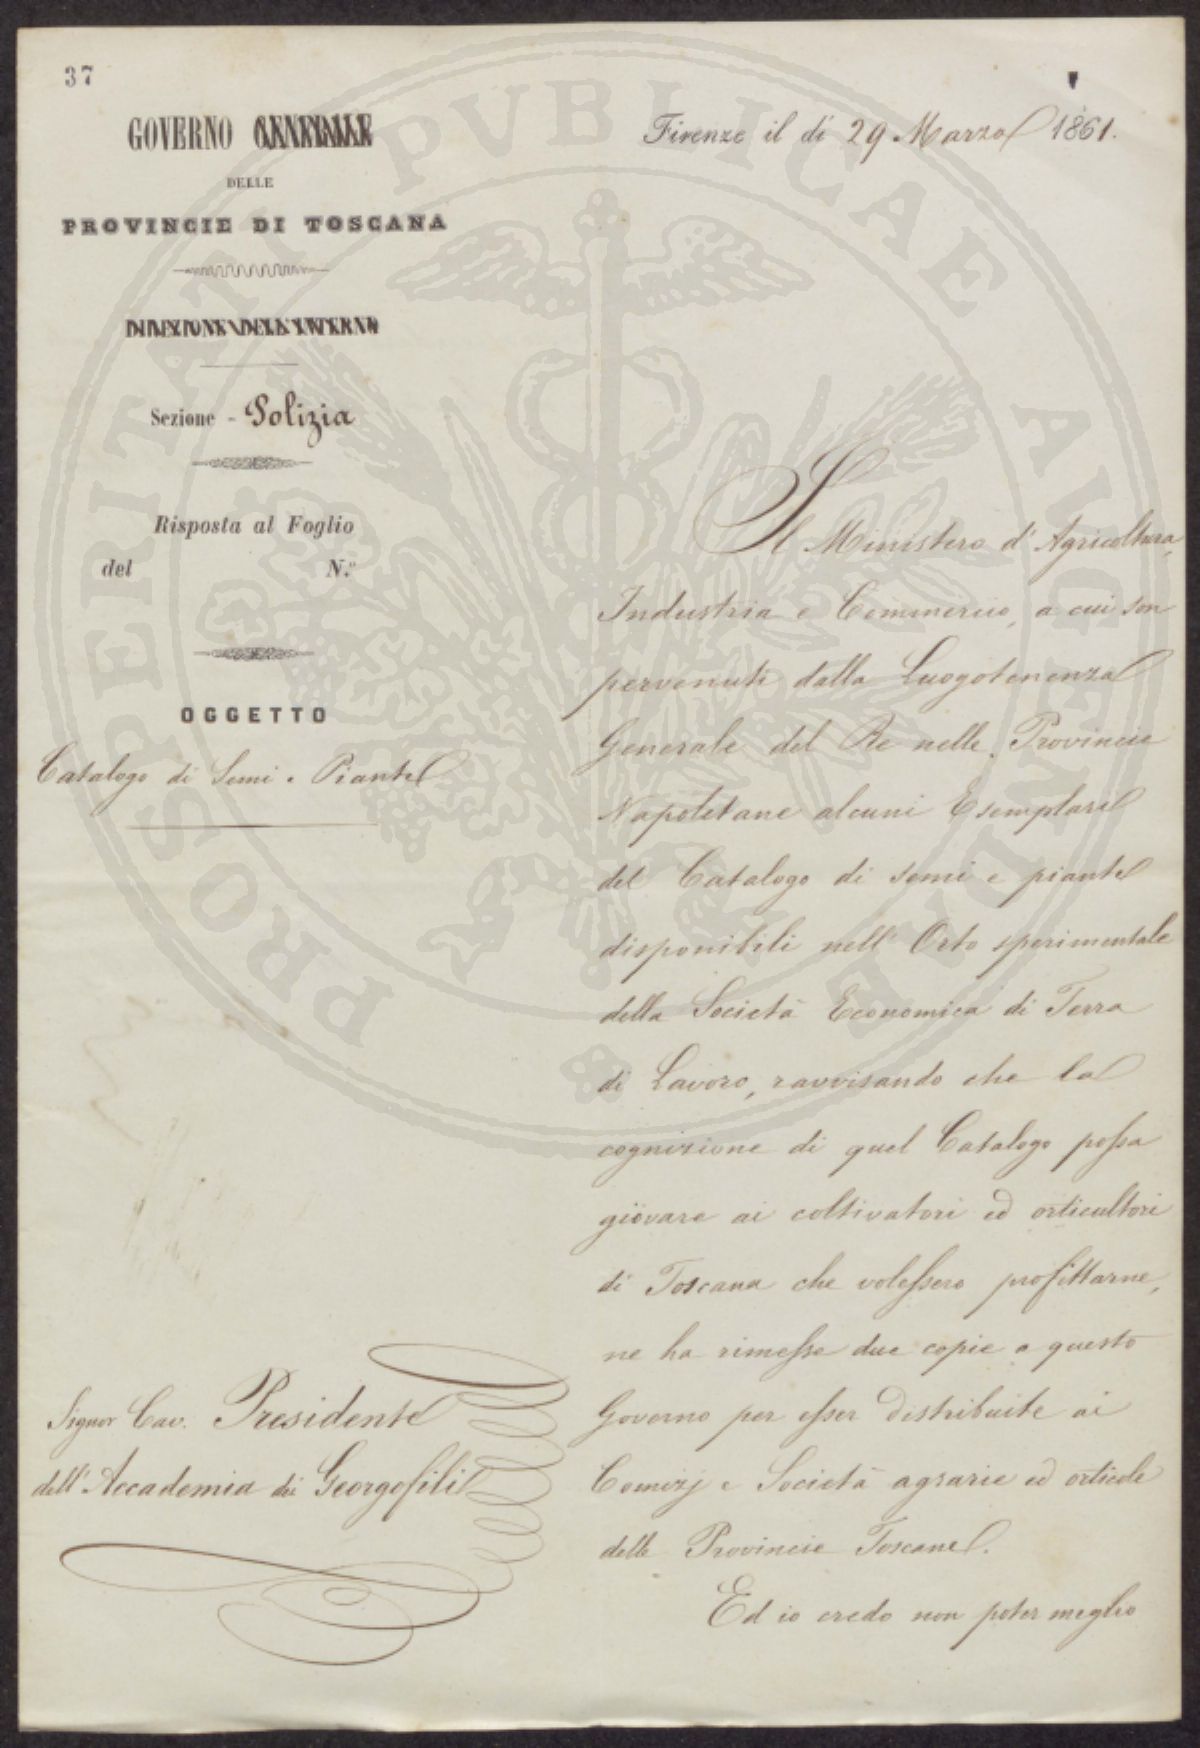 37
GOVERNO GENERALE
DELLE
PROVINCIE DI TOSCANA
DIREZIONE DELL'INTERNO
Sezione - Polizia
Risposta al Foglio
del N.º
OGGETTO
Catalogo di Semi e Piante
Signor Cav. Presidente
dell'Accademia dei Georgofili
Firenze il dì 29 Marzo 1861.
Il Ministero d'Agricoltura,
Industria e Commercio, a cui son
pervenuti dalla Luogotenenza
Generale del Re nelle Provincie
Napoletane alcuni Esemplari
del Catalogo di semi e piante
disponibili nell'Orto sperimentale
della Società Economica di Terra
di Lavoro, ravvisando che la
cognizione di quel Catalogo possa
giovare ai coltivatori ed orticultori
di Toscana che volessero profittarne,
ne ha rimesse due copie a questo
Governo per esser distribuite ai
Comizj e Società agrarie ed orticole
delle Provincie Toscane.
Ed io credo non poter meglio
PROSPERITATI PVBLICAE AVGENDAE